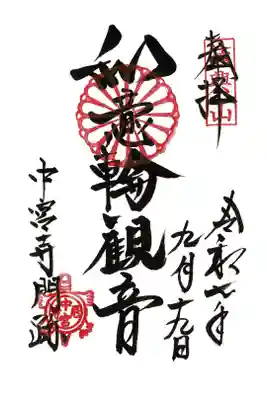 奉拝
令和七年
九月十九日
如意輪觀音
中宮寺門跡